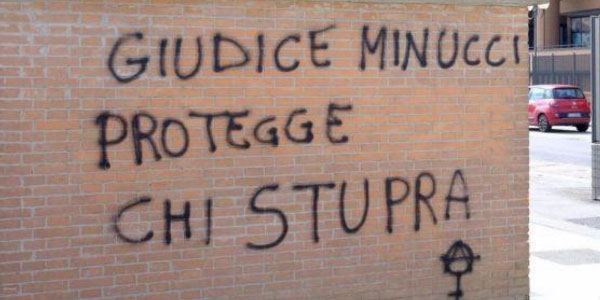 GIUDICE MINUCCI
PROTEGGE
CHI STUPRA